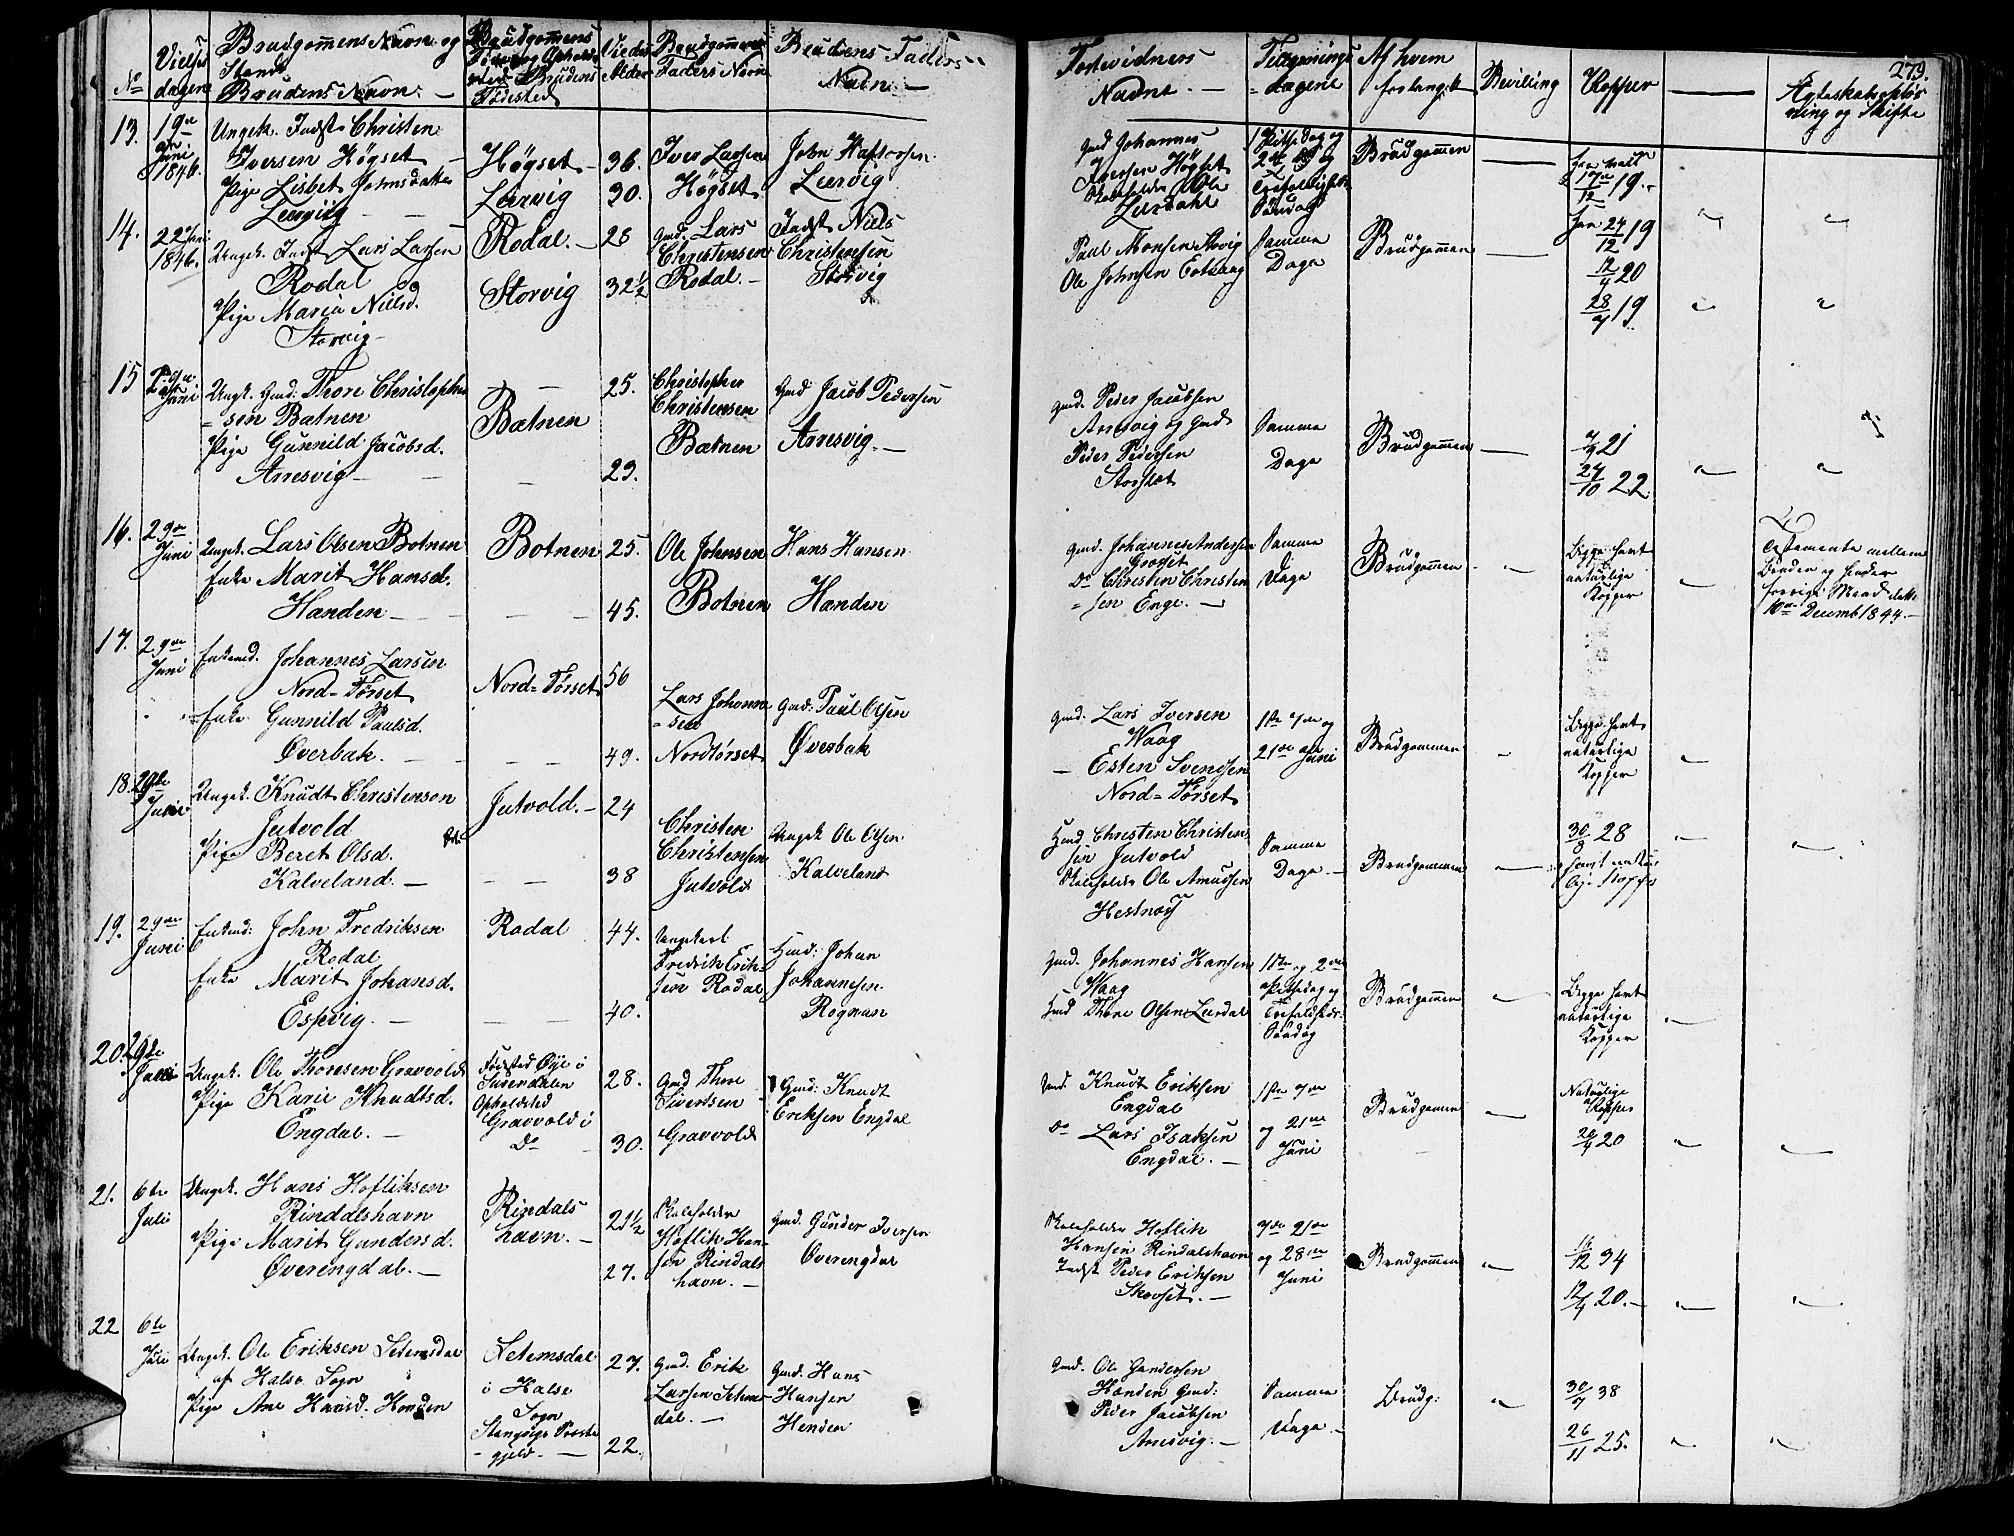 No
Vielses dagen
Brudgommens Navn og
Stand
Brudens Navn. —
Brudgommens
Føde og Opholds
sted Brudens
Fødested
Vieds
Alder
Brudgommens
Faders Navn
Brudens Faders
Navn —
Forlovidners
Navne. —
Tillysnings
dagene
Af hvem
forlangt
Bevilling
Kopper
279.
Ægteskabs opløs
ning og Skifte
13.
19de
Juni
1846.
Ungk. Indst Christen
Iversen Högset
Pige Lisbet Johnsdatter
Leervig
Högset
Leervig
36.
30.
Iver Larsen
Högset
John Haftorsen
Leervig
Gmd Johannes
Iversen Högset
Ole
Leerdahl
1 Pintse Dag og
2den og
Trefoldigheds
Söndag
Brudgommen
17/12 19.
14.
22 Juni
1846.
Ungk. Indst Lars Larsen
Rodal
Pige Maria Nielsd.
Storvig
Rodal. —
Storvig
28
32½
Gmd. Lars
Christensen
Rodal. —
Indst Niels
Christensen
Storvig
Paul Monsen Storvig
Ole Johnsen
Samme
Dage
Brudgommen
24/12 19
12/4 20
28/7 19
15
Juni
Ungk. Gmd. Thore Christopher
= sen Bætnen
Pige Gunnild Jacobsd.
Arnesvig —
Bætnen
25.
23.
Christopher
Christensen
Bætnen
Gmd Jacob Pedersen
Arnesvig. —
Gmd. Peder Jacobsen
Arnesvig og Gmd
Peder Pedersen
Samme
Dage
Brudgommen
21
24/10 22
16.
29de
Juni
Ungk. Lars Olsen Botnen
Enke Marit Hansd.
Handen —
Botnen
25.
45.
Ole Johnsen
Botnen
Hans Hansen
Handen
Gmd. Johannes Andersen
Do Christen Christen
= sen Enge. —
Samme
Dage
Brudgommen
Begge havt
naturlige
Kopper
Testamente mellem
Bruden og hendes
forrige Mand dat:
10de Decemb 1844. —
17.
29de
Juni
Enkemd. Johannes Larsen
Nord=Tørset
Enke. Gunnild Paulsd.
Øverbak.
Nord=Tørset
56
49.
Lars Johann
= sen
Nordtørset
Gmd: Paul Olsen
Øverbak
Gmd. Lars Iversen
Waag
— Esten Svendsen
Nord=Tørset
1ste 7de og
21de Juni
Brudgommen
Begge havt
naturlige
Kopper
18.
29de
Juni
Ungk. Knudt Christensen
Jutvold
Pige Beret Olsd.
Kalveland. —
Jutvold. —
24
38
Christen
Christensen
Jutvold
Ungk Ole Olsen
Kalveland
Hmd. Christen Christen
sen Jutvold
Ole Amundsen
Hestnæs
Samme
Dage —
Brudgommen
30/8 28
19.
29de
Juni
Enkmd: John Fredriksen
Rodal
Enke Marit Johansd.
Espvig. —
Rodal
44.
40.
Ungkarl
Fredrik Erik-
sen Rodal
Hmd: Johan
Johannesen
Rognan
Gmd. Johannes Hansen
Waag
Hmd Thore Olsen Leerdal
1ste og 2den
Pintsedag og
Trefoldigheds
Söndag
Brudgommen
Begge havt
naturlige
Kopper
20.
29de
Juni
Ungk. Ole Thoresen Gravvold
Pige Karie Knudtsd.
Engdal. —
Fødsted Øye i
Surendalen
Opholdsted
Gravvold i
Do
28.
30.
Gmd Thore
Sivertsen
Gravvold
Gmd: Knudt
Eriksen Engdal
Gmd. Knudt Eriksen
Engdal
Do Lars Isaksen
Engdal. —
1ste 7de
og 21de
Juni
Brudgommen
Naturlige
Kopper
20
21.
6te
Juli
Ungk. Hans Hofliksen
Rindalshavn
Pige Marit Gundersd.
Øverengdal. —
Rindals
havn. —
21½
27.
Hoflik Han-
sen Rindals
havn. —
Gmd. Gunder Iversen
Øverengdal
Hoflik
Hansen Rindalshavn
Indst Peder Eriksen
Skovset. —
7de 21de
og 28de
Juni
Brudgommen
34
20. —
22
6te
Juli
Ungk. Ole Eriksen Setemsdal
af Halse Sogn
Pige Ane Hansd. Handen
Setemsdal
i Halse
Sogn
Stangvigs Præste
= gjeld. —
27.
22.
Gmd. Erik
Larsen Setems
dal. —
Gmd. Hans
Hansen
Henden
Gmd. Ole Gundersen
Handen Gmd:
Peder Jacobsen
Arnesvig. —
Samme
Dage. —
Brudg:
30/7 38
26/11 25.